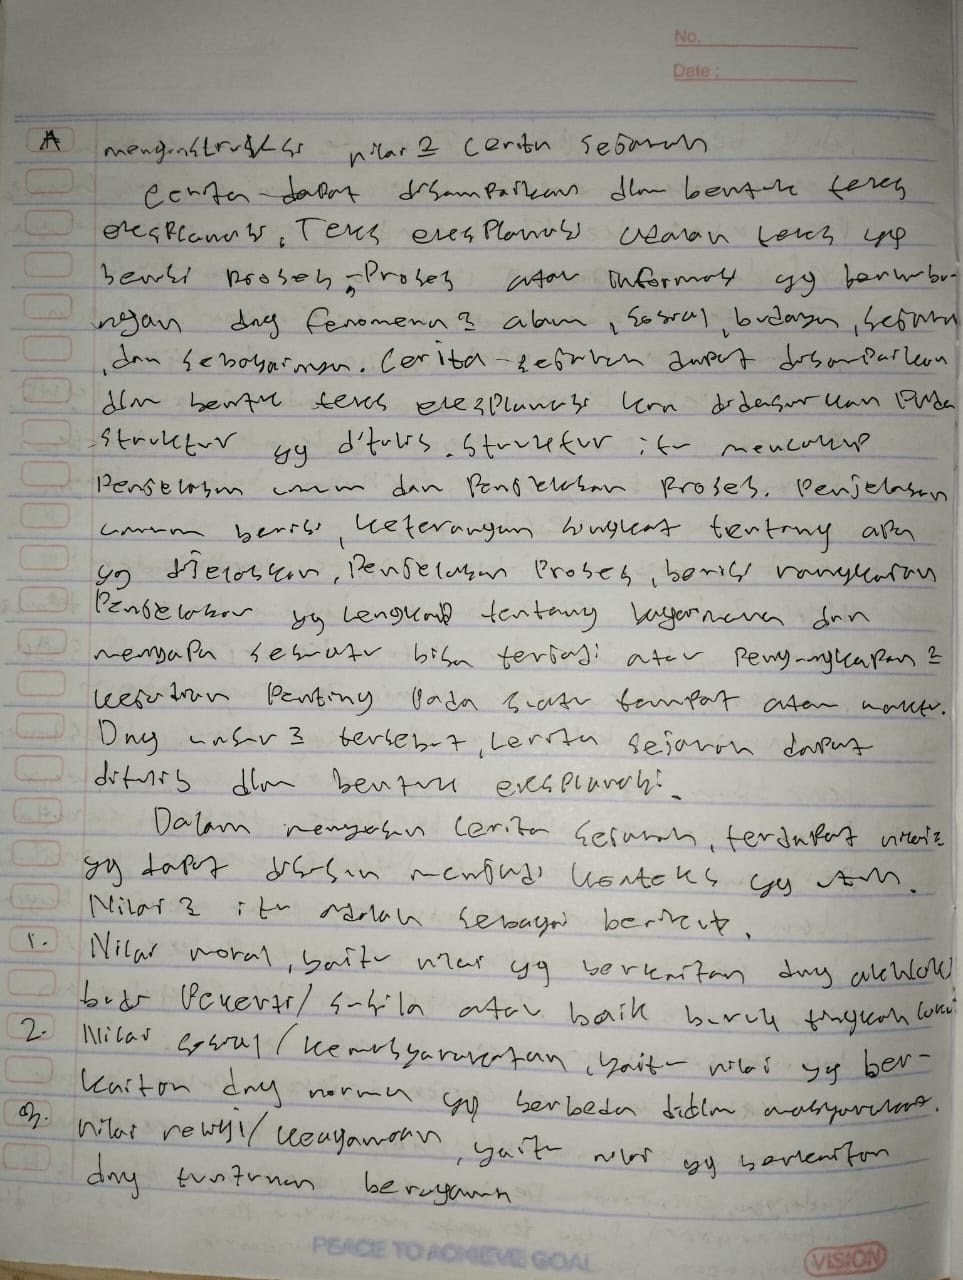 No.
Date :
A mengonstruksi nilai2 cerita sejarah
Cerita dapat disampaikan dlm bentuk teks
eksplanasi. Teks eksplanasi teks yg
berisi proses-proses atau informasi yg berhubu-
ngan dng fenomena2 alam, sosial, budaya, sejarah
, dan sebagainya. Cerita sejarah dapat disampaikan
dlm bentuk teks eksplanasi krn didasarkan pada
struktur yg ditulis. Struktur itu mencakup
Penjelasan umum dan Penjelasan Proses. Penjelasan
umum berisi keterangan singkat tentang apa
yg dijelaskan, Penjelasan Proses, berisi rangkaian
Penjelasan yg lengkap tentang bagaimana dan
mengapa sesuatu bisa terjadi atau Pengungkapan2
kejadian Penting pada suatu tempat atau waktu.
Dng unsur2 tersebut, cerita sejarah dapat
ditulis dlm bentuk eksplanasi.
Dalam cerita sejarah, terdapat nilai2
yg dapat disusun menjadi konteks yg utuh.
Nilai2 itu adalah sebagai berikut.
1. Nilai moral, yaitu nilai yg berkaitan dng akhlak/
budi Pekerti/ susila atau baik buruk tingkah laku
2. Nilai sosial/kemasyarakatan, yaitu nilai yg ber-
kaitan dng norma yg berbeda didlm masyarakat.
3. nilai religi/keagamaan, yaitu nilai yg berkaitan
dng tuntunan beragama
PEACE TO ACHIEVE GOAL
VISION